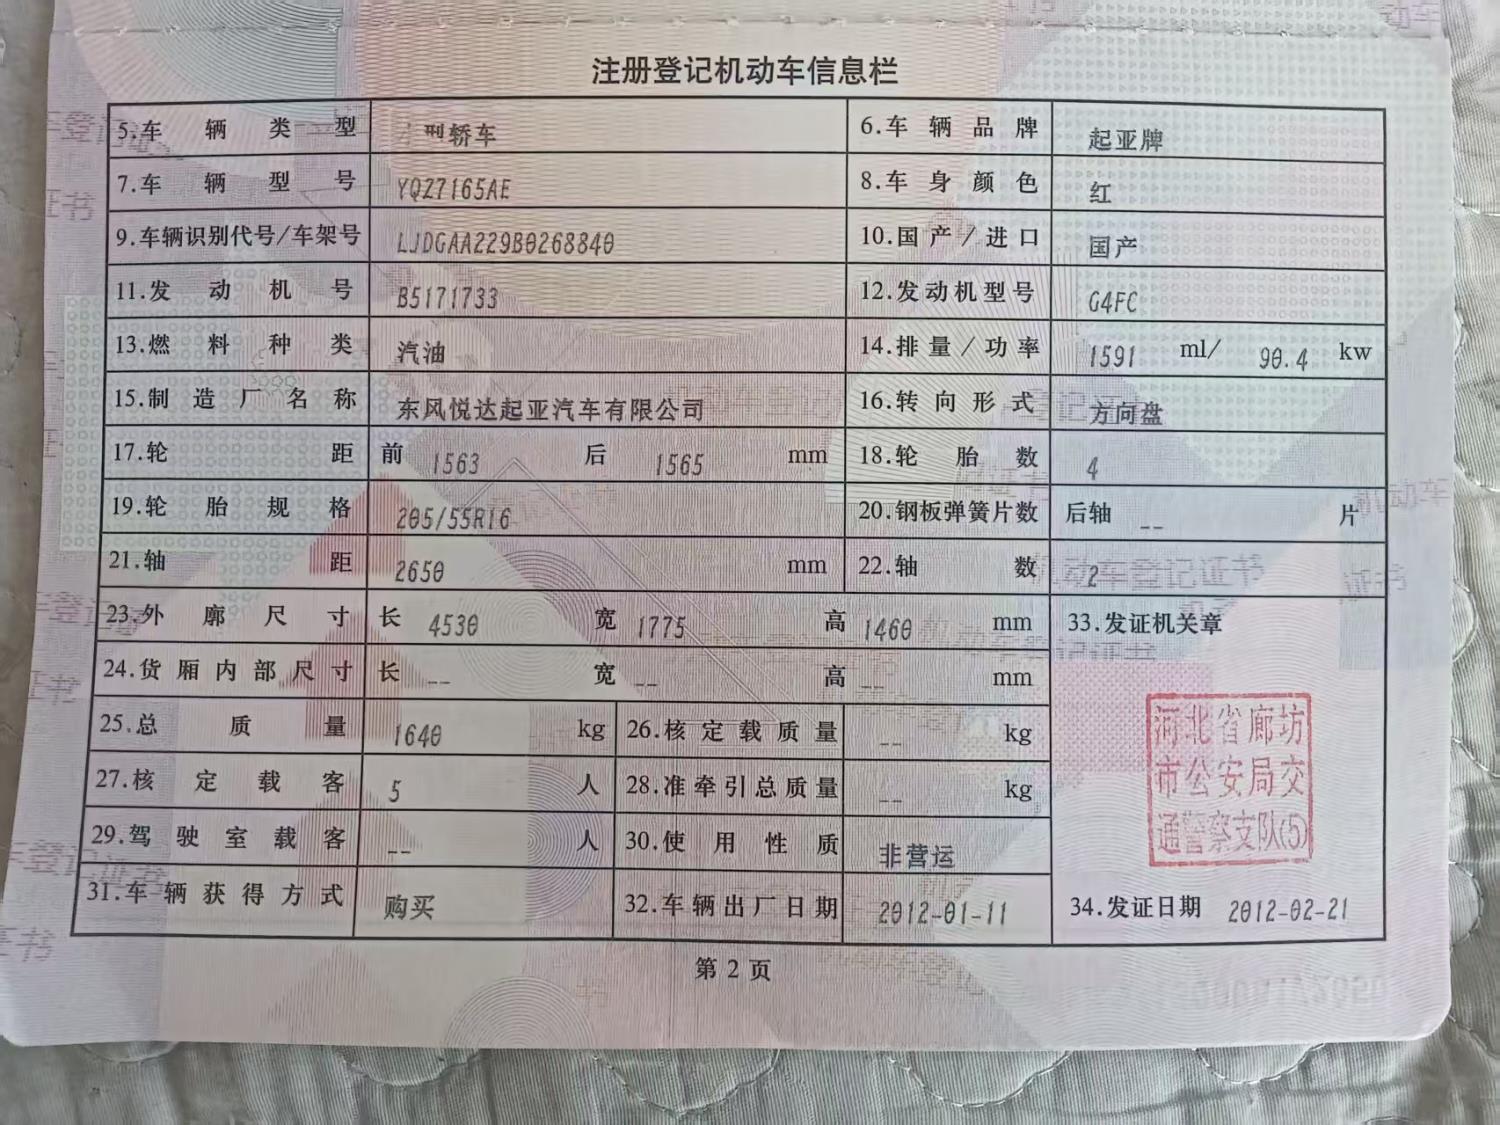 注册登记机动车信息栏
5.车辆类型 型轿车 6.车辆品牌 起亚牌
7.车辆型号 YQZ7165AE 8.车身颜色 红
9.车辆识别代号/车架号 LJDGAA229B0268840 10.国产/进口 国产
11.发动机号 B5171733 12.发动机型号 G4FC
13.燃料种类 汽油 14.排量/功率 1591 ml/ 90.4 kw
15.制造厂名称 东风悦达起亚汽车有限公司 16.转向形式 方向盘
17.轮距 前 1563 后 1565 mm 18.轮胎数 4
19.轮胎规格 205/55R16 20.钢板弹簧片数 后轴 -- 片
21.轴距 2650 mm 22.轴数 2
23.外廓尺寸 长 4530 宽 1775 高 1460 mm 33.发证机关章
24.货厢内部尺寸 长 -- 宽 -- 高 -- mm
25.总质量 1640 kg 26.核定载质量 -- kg
27.核定载客 5 人 28.准牵引总质量 -- kg
29.驾驶室载客 -- 人 30.使用性质 非营运
31.车辆获得方式 购买 32.车辆出厂日期 2012-01-11 34.发证日期 2012-02-21
河北省廊坊
市公安局交
通警察支队(5)
第2页